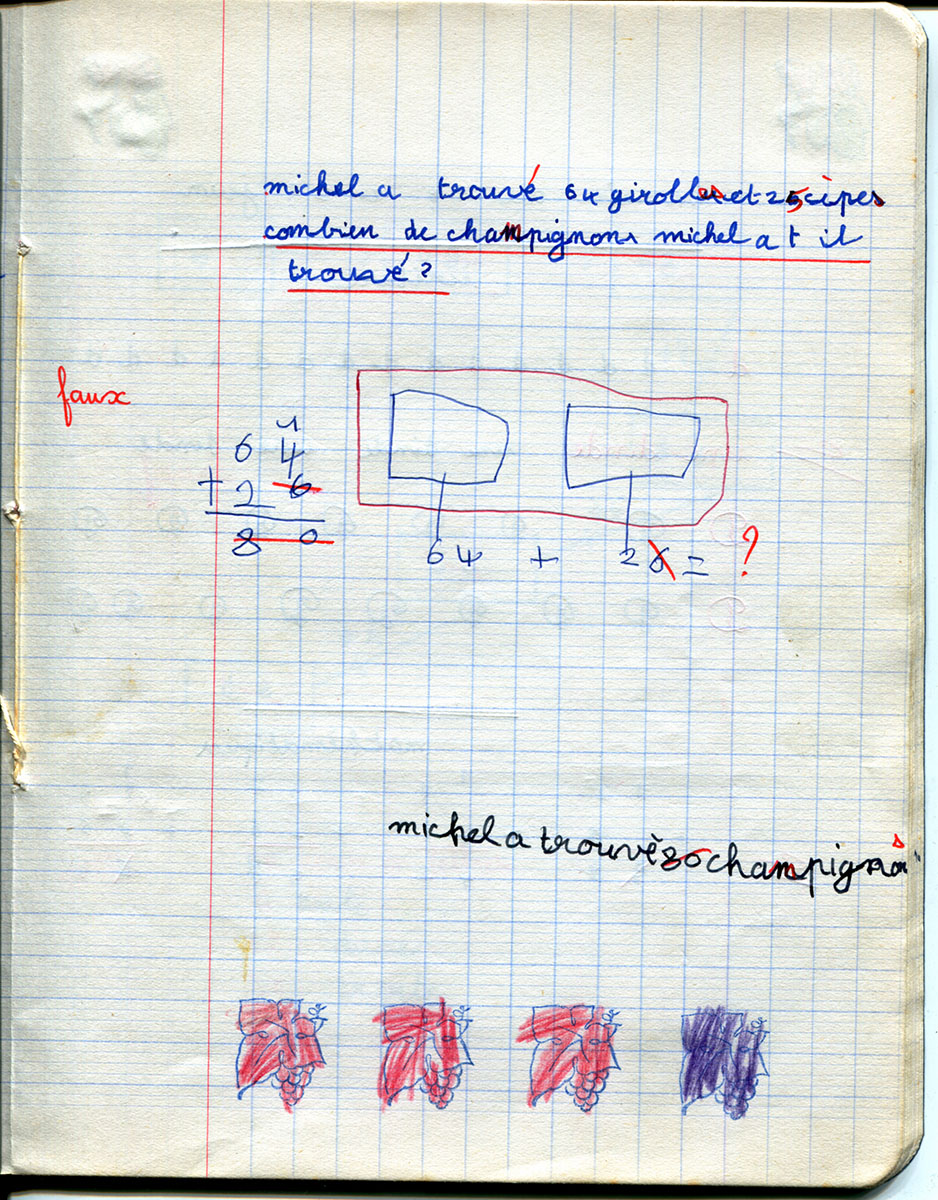 michel a trouvé 64 girolles et 25 cèpes
combien de champignons michel a t il
trouvé ?
faux
1
6 4
+ 2 6
8 0
64 + 26 = ?
michel a trouvè 80 champignons